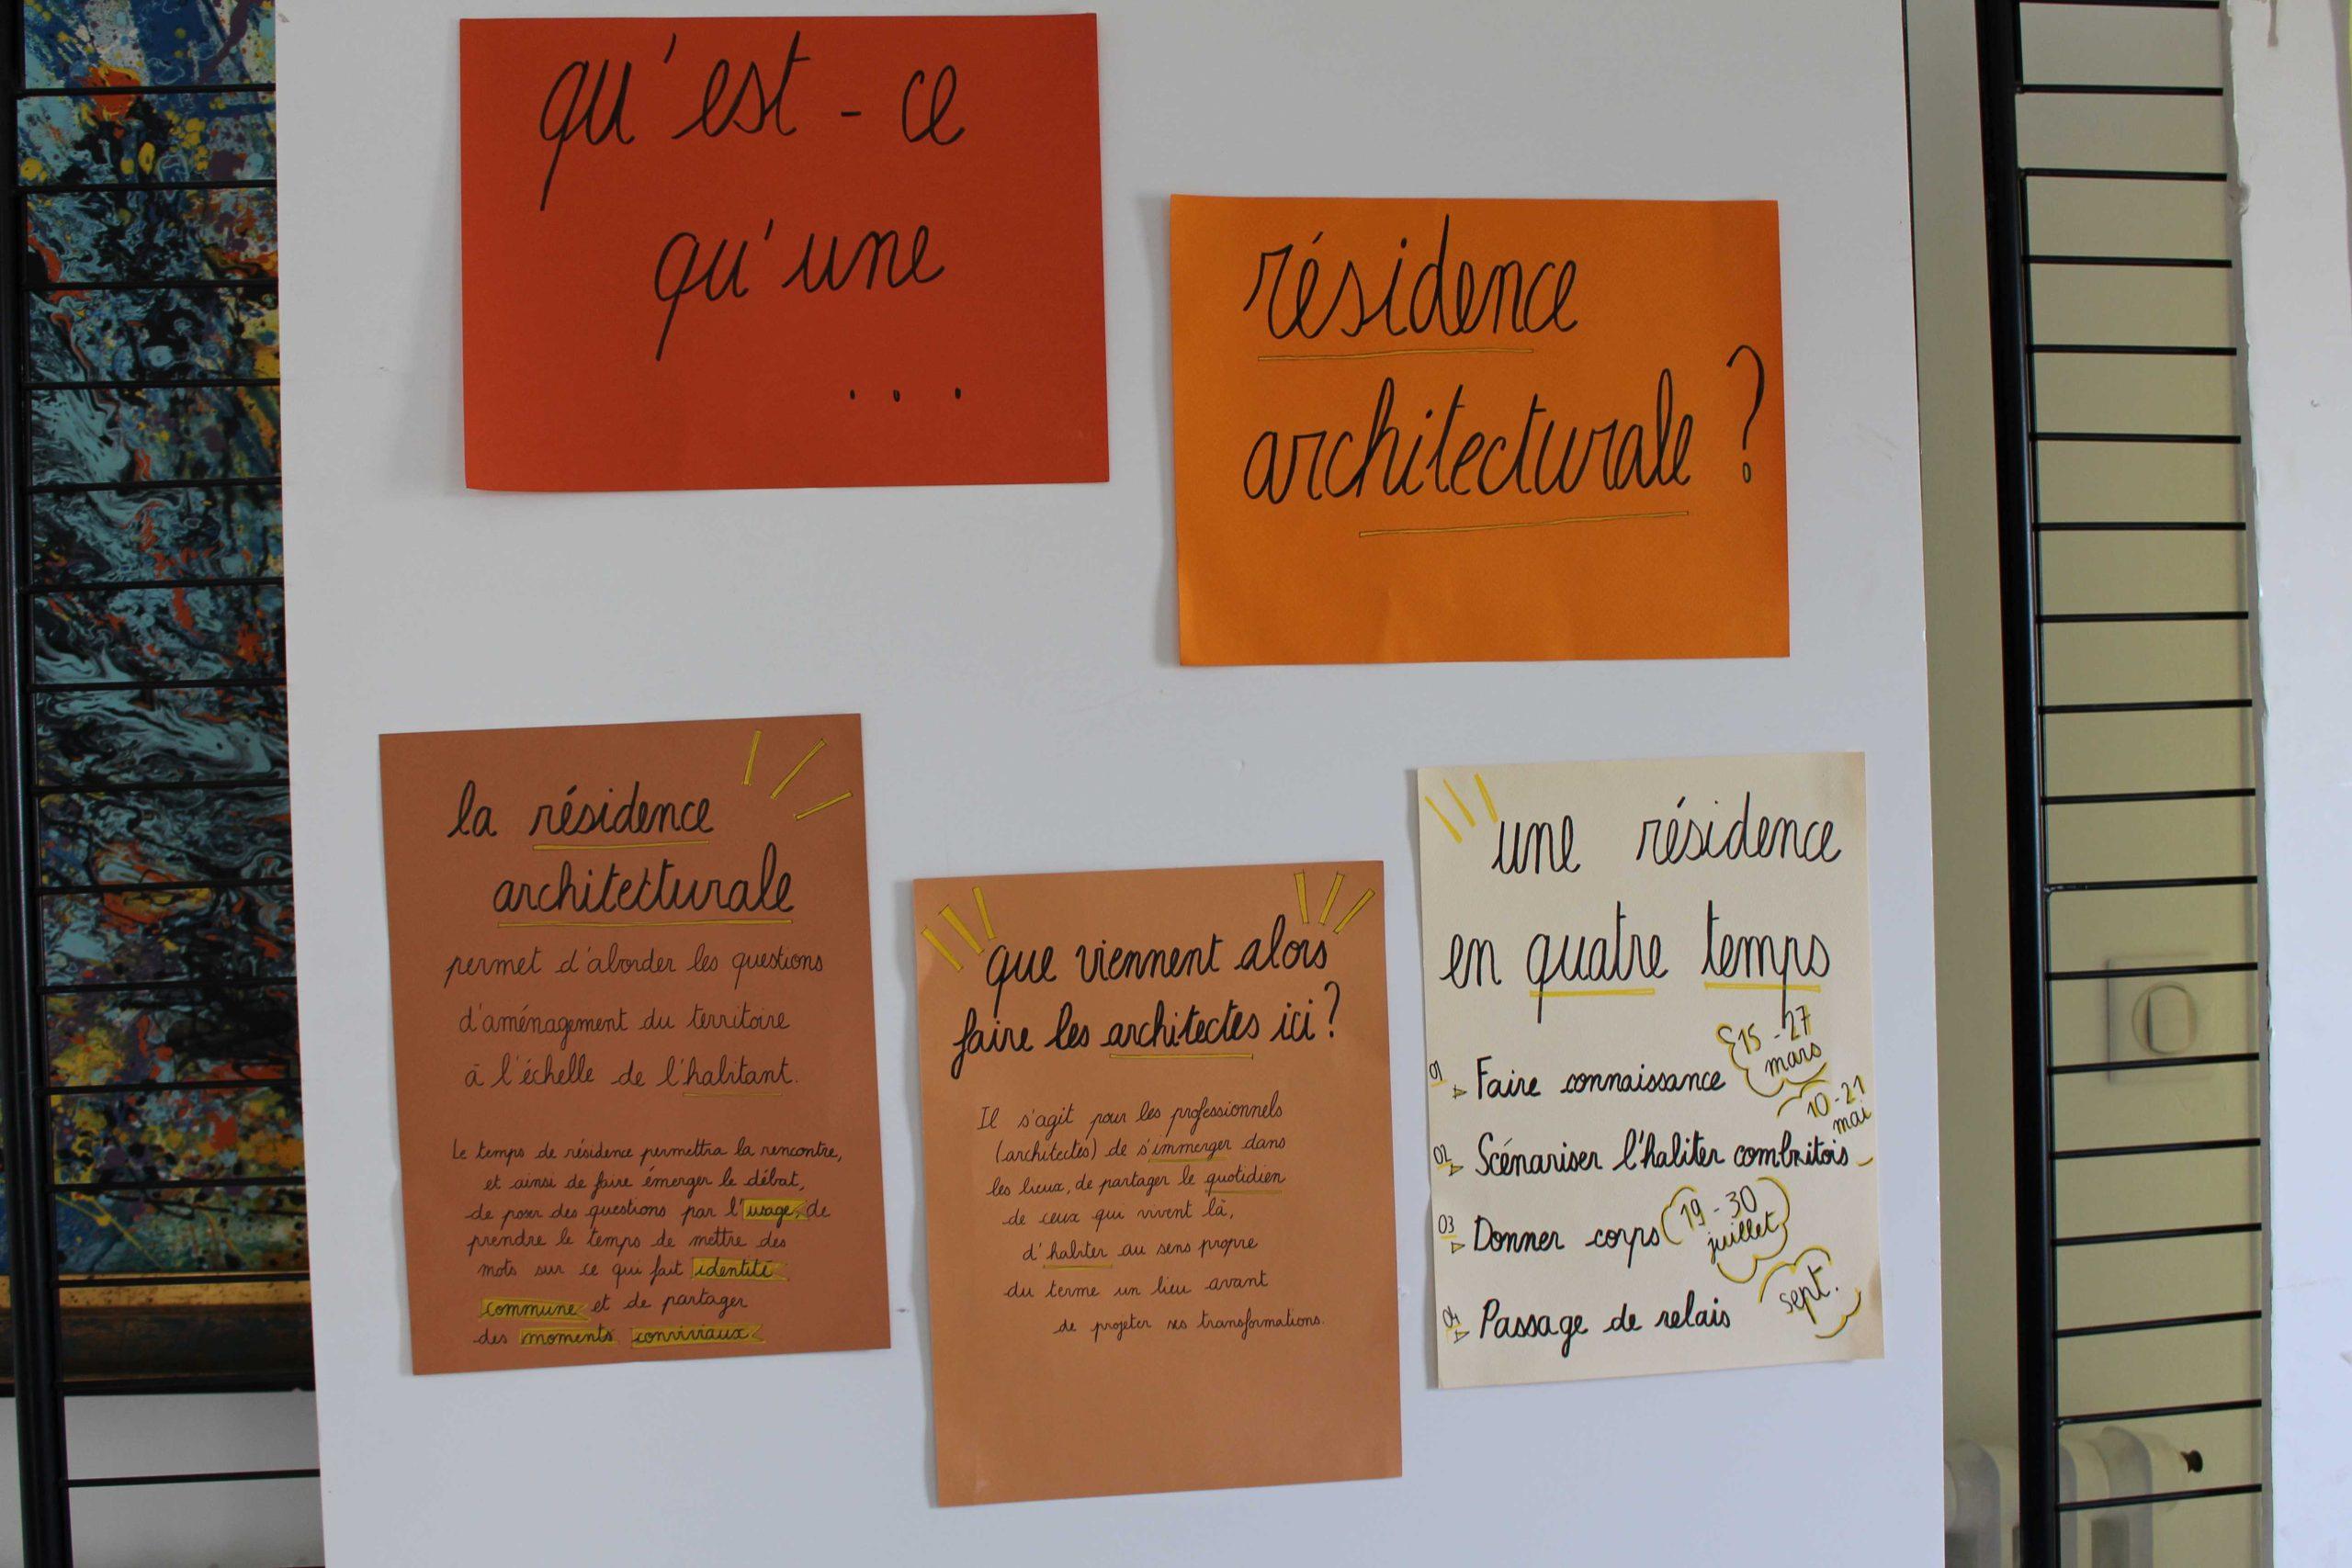 qu'est-ce
qu'une
...
résidence
architecturale ?
la résidence
architecturale
permet d'aborder les questions
d'aménagement du territoire
à l'échelle de l'habitant.
Le temps de résidence permettra la rencontre,
et ainsi de faire émerger le débat,
de poser des questions par l'usage, de
prendre le temps de mettre des
mots sur ce qui fait identité
commune et de partager
des moments conviviaux
que viennent alors
faire les architectes ici ?
Il s'agit pour les professionnels
(architectes) de s'immerger dans
les lieux, de partager le quotidien
de ceux qui vivent là,
d'habiter au sens propre
du terme un lieu avant
de projeter ses transformations.
une résidence
en quatre temps
01 Faire connaissance 15-27
mars
10-21
mai
02 Scénariser l'habiter combritois
03 Donner corps 19-30
juillet
04 Passage de relais sept.